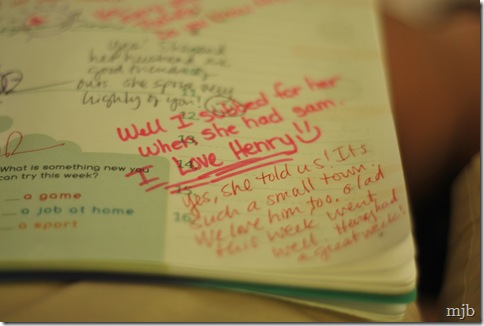 Yes! She and
her husband are
good friends of
ours. She spoke very
highly of you!
12
Well I subbed for her
when she had Sam.
I Love Henry
14
15
16
Yes, she told us! It's
such a small town.
We love him too. Glad
this week went
well. Henry had
a great week!
What is something new you
can try this week?
a game
a job at home
a sport
mjb